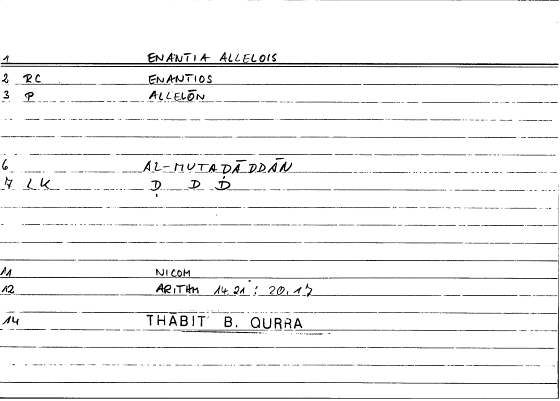 1 ENANTIA ALLELOIS
2 RC ENANTIOS
3 P ALLELŌN
6 AL-MUTADĀDDĀN
7 LK Ḍ D Ḋ
11 NICOM
12 ARITHM 14.21 ; 20.17
14 THĀBIT B. QURRA